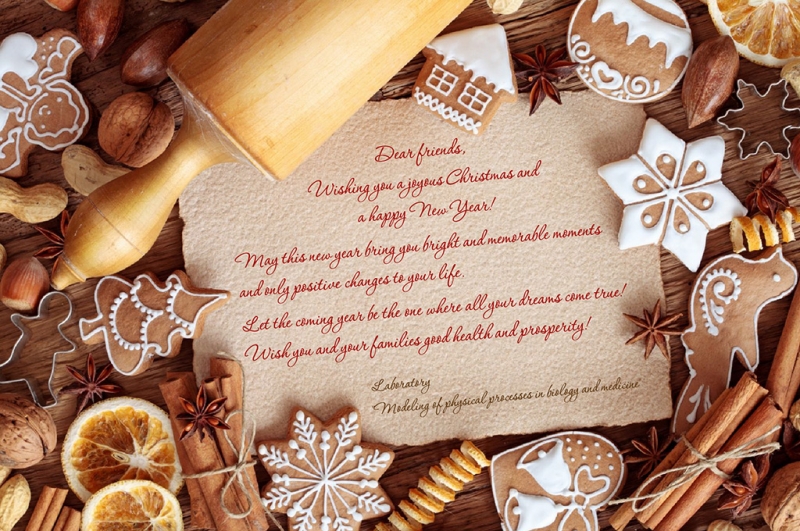 Dear friends,
Wishing you a joyous Christmas and
a happy New Year!
May this new year bring you bright and memorable moments
and only positive changes to your life.
Let the coming year be the one where all your dreams come true!
Wish you and your families good health and prosperity!
Laboratory
"Modeling of physical processes in biology and medicine"